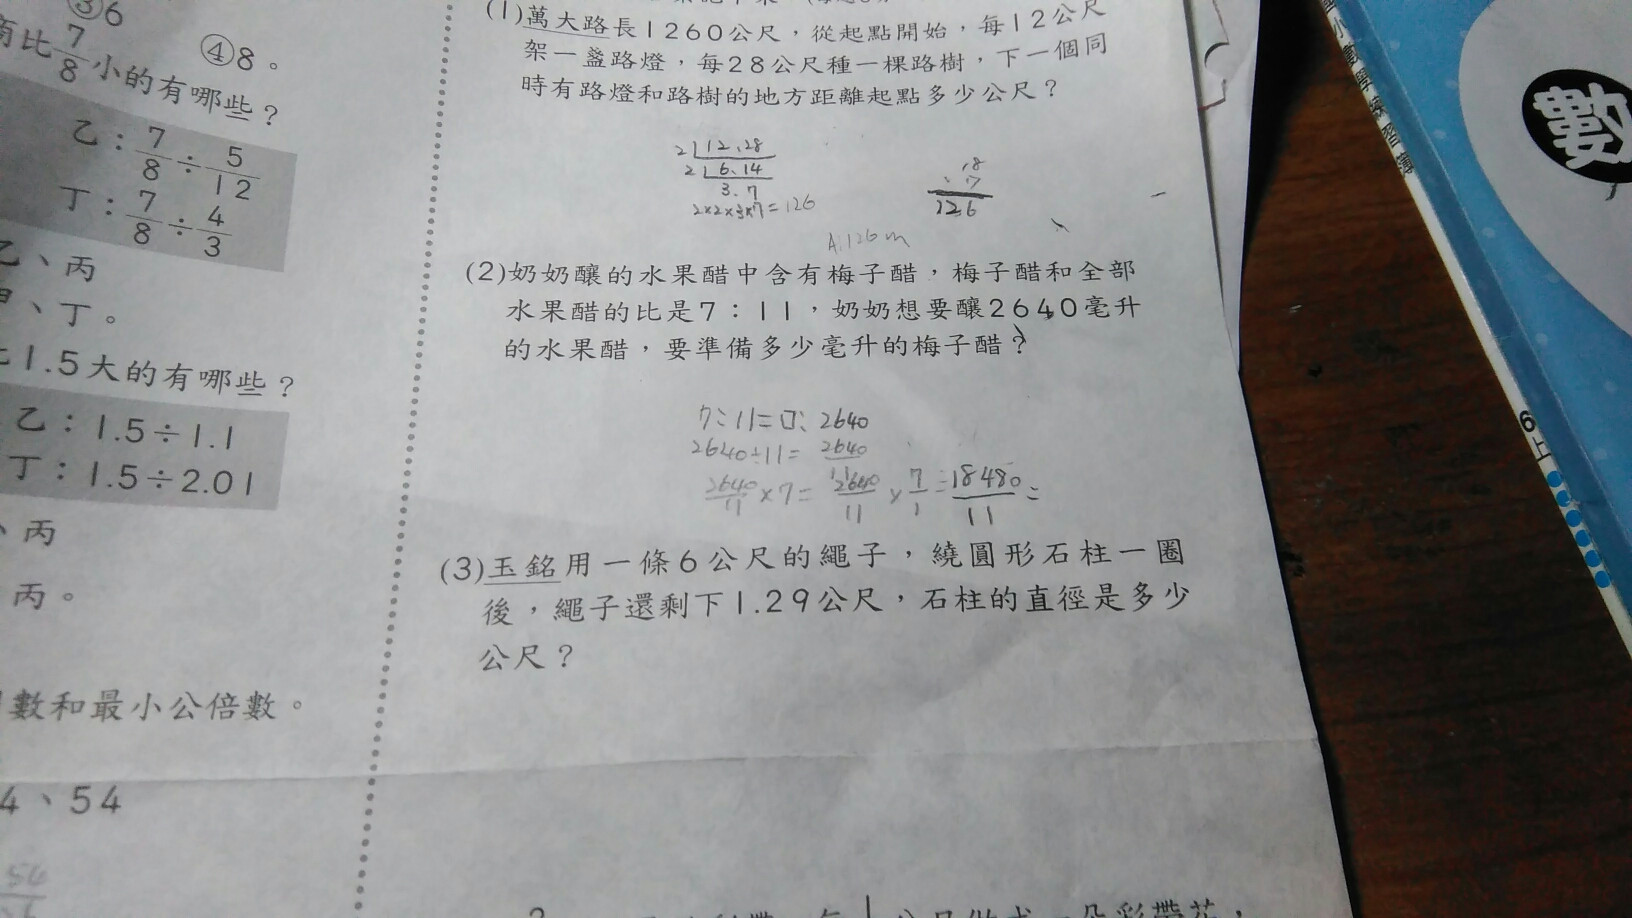 ③6
④8。
比7/8小的有哪些？
乙：7/8÷5/12
丁：7/8÷4/3
乙、丙
、丁。
1.5大的有哪些？
乙：1.5÷1.1
丁：1.5÷2.01
、丙
丙。
數和最小公倍數。
4、54
54
(1)萬大路長1260公尺，從起點開始，每12公尺
架一盞路燈，每28公尺種一棵路樹，下一個同
時有路燈和路樹的地方距離起點多少公尺？
2 12.28
2 6.14
3.7
2×2×3×7=126
18
7
126
A:126m
(2)奶奶釀的水果醋中含有梅子醋，梅子醋和全部
水果醋的比是7：11，奶奶想要釀2640毫升
的水果醋，要準備多少毫升的梅子醋？
7:11=□:2640
2640÷11=2640
2640/11×7=2640/11×7/1=18480/11=
(3)玉銘用一條6公尺的繩子，繞圓形石柱一圈
後，繩子還剩下1.29公尺，石柱的直徑是多少
公尺？
公尺做成一朵彩帶花，
小數學練習簿
數
6上